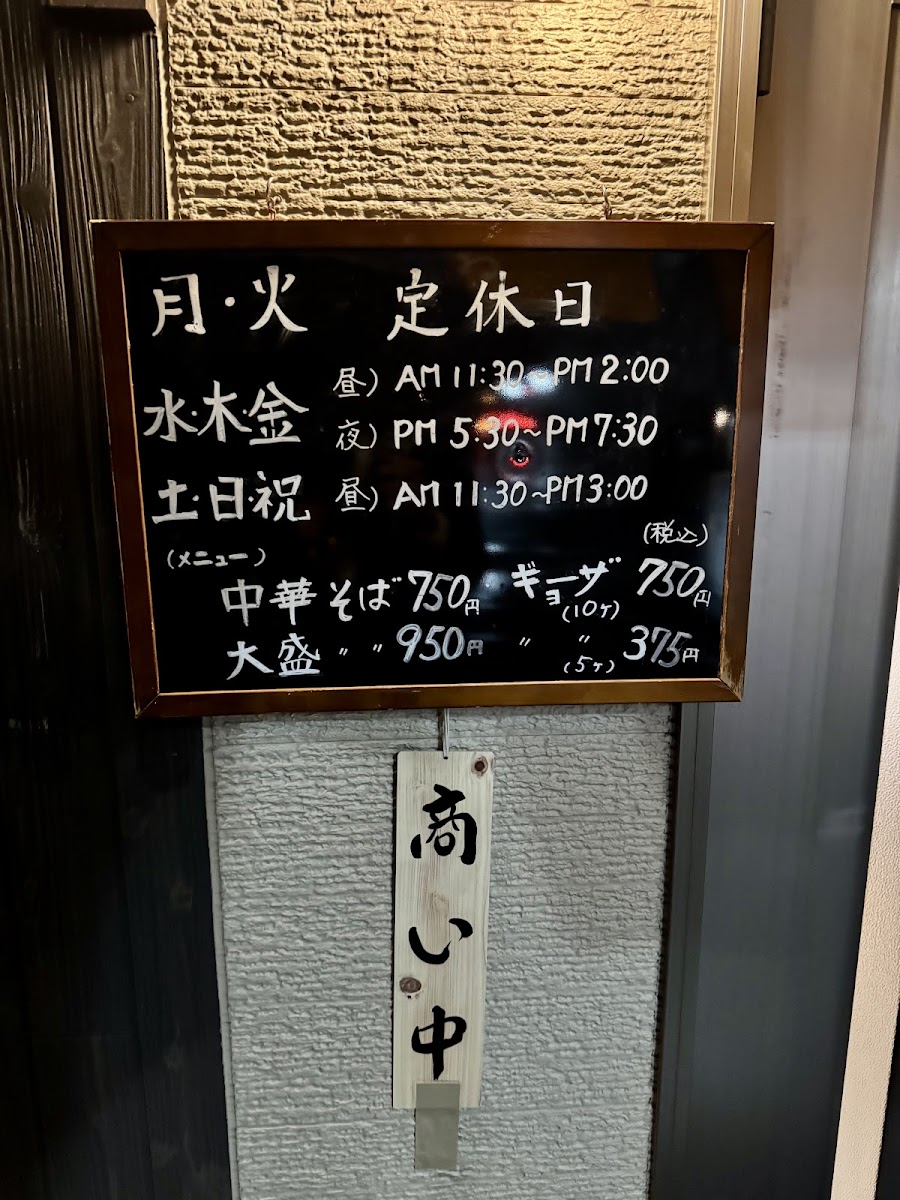 月・火 定休日
水・木・金 昼) AM 11:30~PM 2:00
夜) PM 5:30~PM 7:30
土・日・祝 昼) AM 11:30~PM 3:00
(税込)
(メニュー)
中華そば 750円 ギョーザ(10ケ) 750円
大盛 〃 〃 950円 〃 〃 (5ケ) 375円
商い中